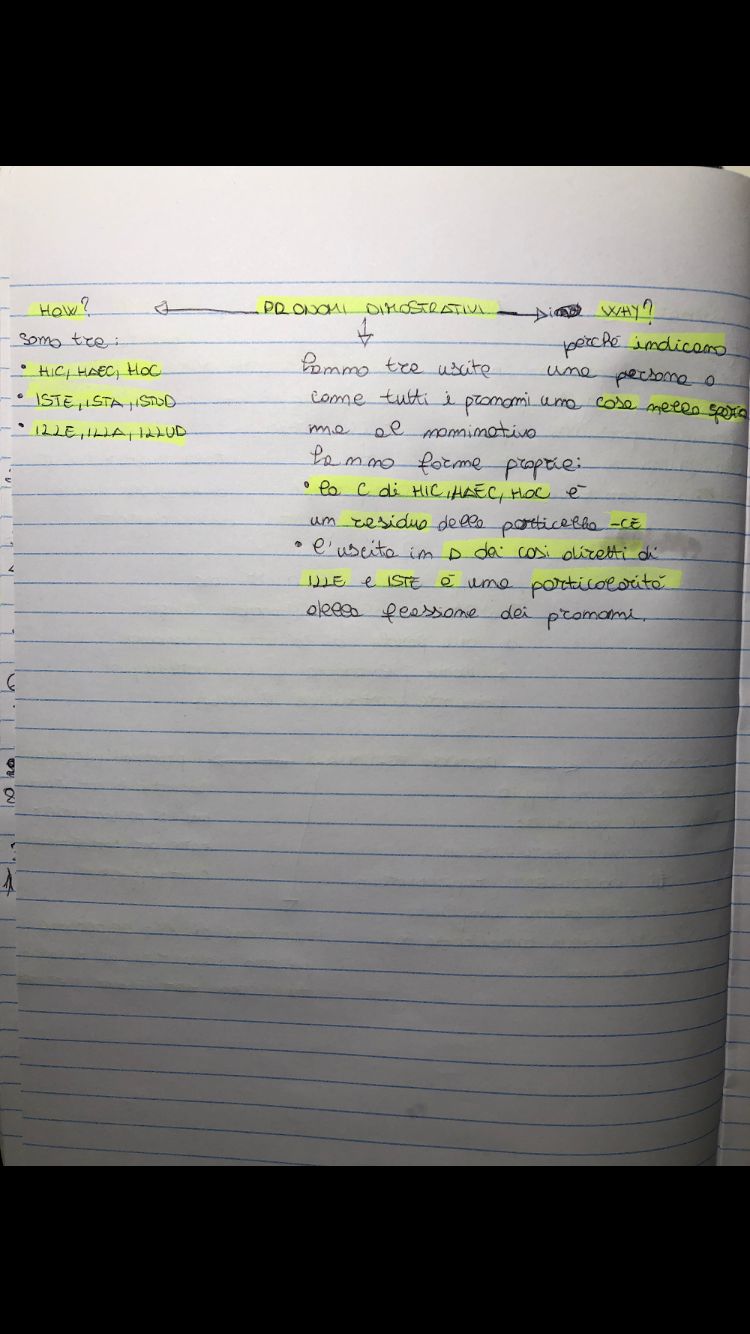 HOW?
PRONOMI DIMOSTRATIVI
WHY?
sono tre:
• HIC, HAEC, HOC
• ISTE, ISTA, ISTUD
• ILLE, ILLA, ILLUD
hanno tre uscite
come tutti i pronomi
ma al nominativo
hanno forme proprie:
• la C di HIC, HAEC, HOC è
un residuo della particella -CE
• l'uscita in D dei casi diretti di
ILLE e ISTE è una particolarità
della flessione dei pronomi.
perché indicano
una persona o
una cosa nello